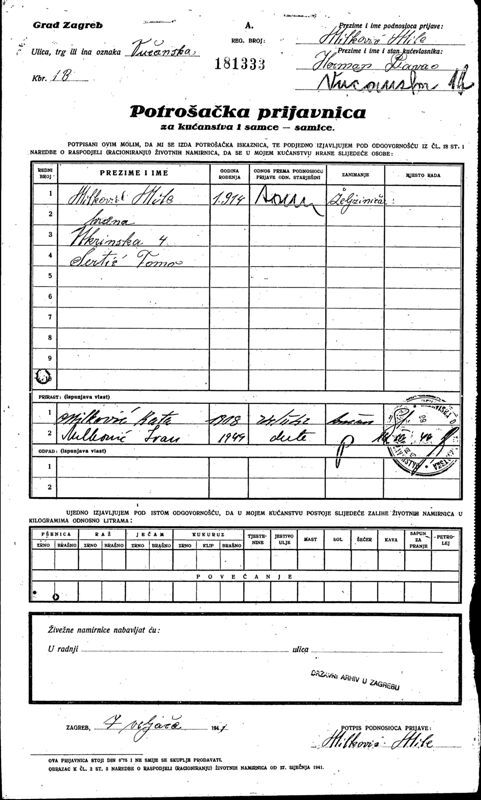 Grad Zagreb
A.
Prezime i ime podnosioca prijave:
Ulica, trg ili ina oznaka Vučanska
REG. BROJ:
Milković Mile
181333
Prezime i ime i stan kućevlasnika:
Kbr. 18
Herman
Potrošačka prijavnica
za kućanstva i samce — samice.
POTPISANI OVIM MOLIM, DA MI SE IZDA POTROŠAČKA ISKAZNICA, TE PODJEDNO IZJAVLJUJEM POD ODGOVORNOŠĆU IZ ČL. 18 ST. 1
NAREDBE O RASPODJELI (RACIONIRANJU) ŽIVOTNIH NAMIRNICA, DA SE U MOJEM KUĆANSTVU HRANE SLIJEDEĆE OSOBE:
REDNI BROJ PREZIME I IME GODINA ROĐENJA ODNOS PREMA PODNOSIOCU PRIJAVE ODN. STARJEŠINI ZANIMANJE MJESTO RADA
1 Milković Mile 1.914
2
3 4
4 Sertić Tomo
5
6
7
8
9
PRIRAST: (ispunjava vlast)
1 Milković Kata 1918
2 Milković Ivan 1944 dite
OTPAD: (ispunjava vlast)
1
2
UJEDNO IZJAVLJUJEM POD ISTOM ODGOVORNOŠĆU, DA U MOJEM KUĆANSTVU POSTOJE SLIJEDEĆE ZALIHE ŽIVOTNIH NAMIRNICA U
KILOGRAMIMA ODNOSNO LITRAMA:
PŠENICA RAŽ JEČAM KUKURUZ TJESTENINE JESTIVO ULJE MAST SOL ŠEĆER KAVA SAPUN ZA PRANJE PETROLEJ
ZRNO BRAŠNO ZRNO BRAŠNO ZRNO BRAŠNO ZRNO KLIP BRAŠNO
POVEĆANJE
Živežne namirnice nabavljat ću:
U radnji ulica
DRŽAVNI ARHIV U ZAGREBU
ZAGREB, 7 veljače 194
POTPIS PODNOSIOCA PRIJAVE:
Milković Mile
OVA PRIJAVNICA STOJI DIN 0'75 I NE SMIJE SE SKUPLJE PRODAVATI.
OBRAZAC K ČL. 2 ST. 3 NAREDBE O RASPODJELI (RACIONIRANJU) ŽIVOTNIH NAMIRNICA OD 27. SIJEČNJA 1941.